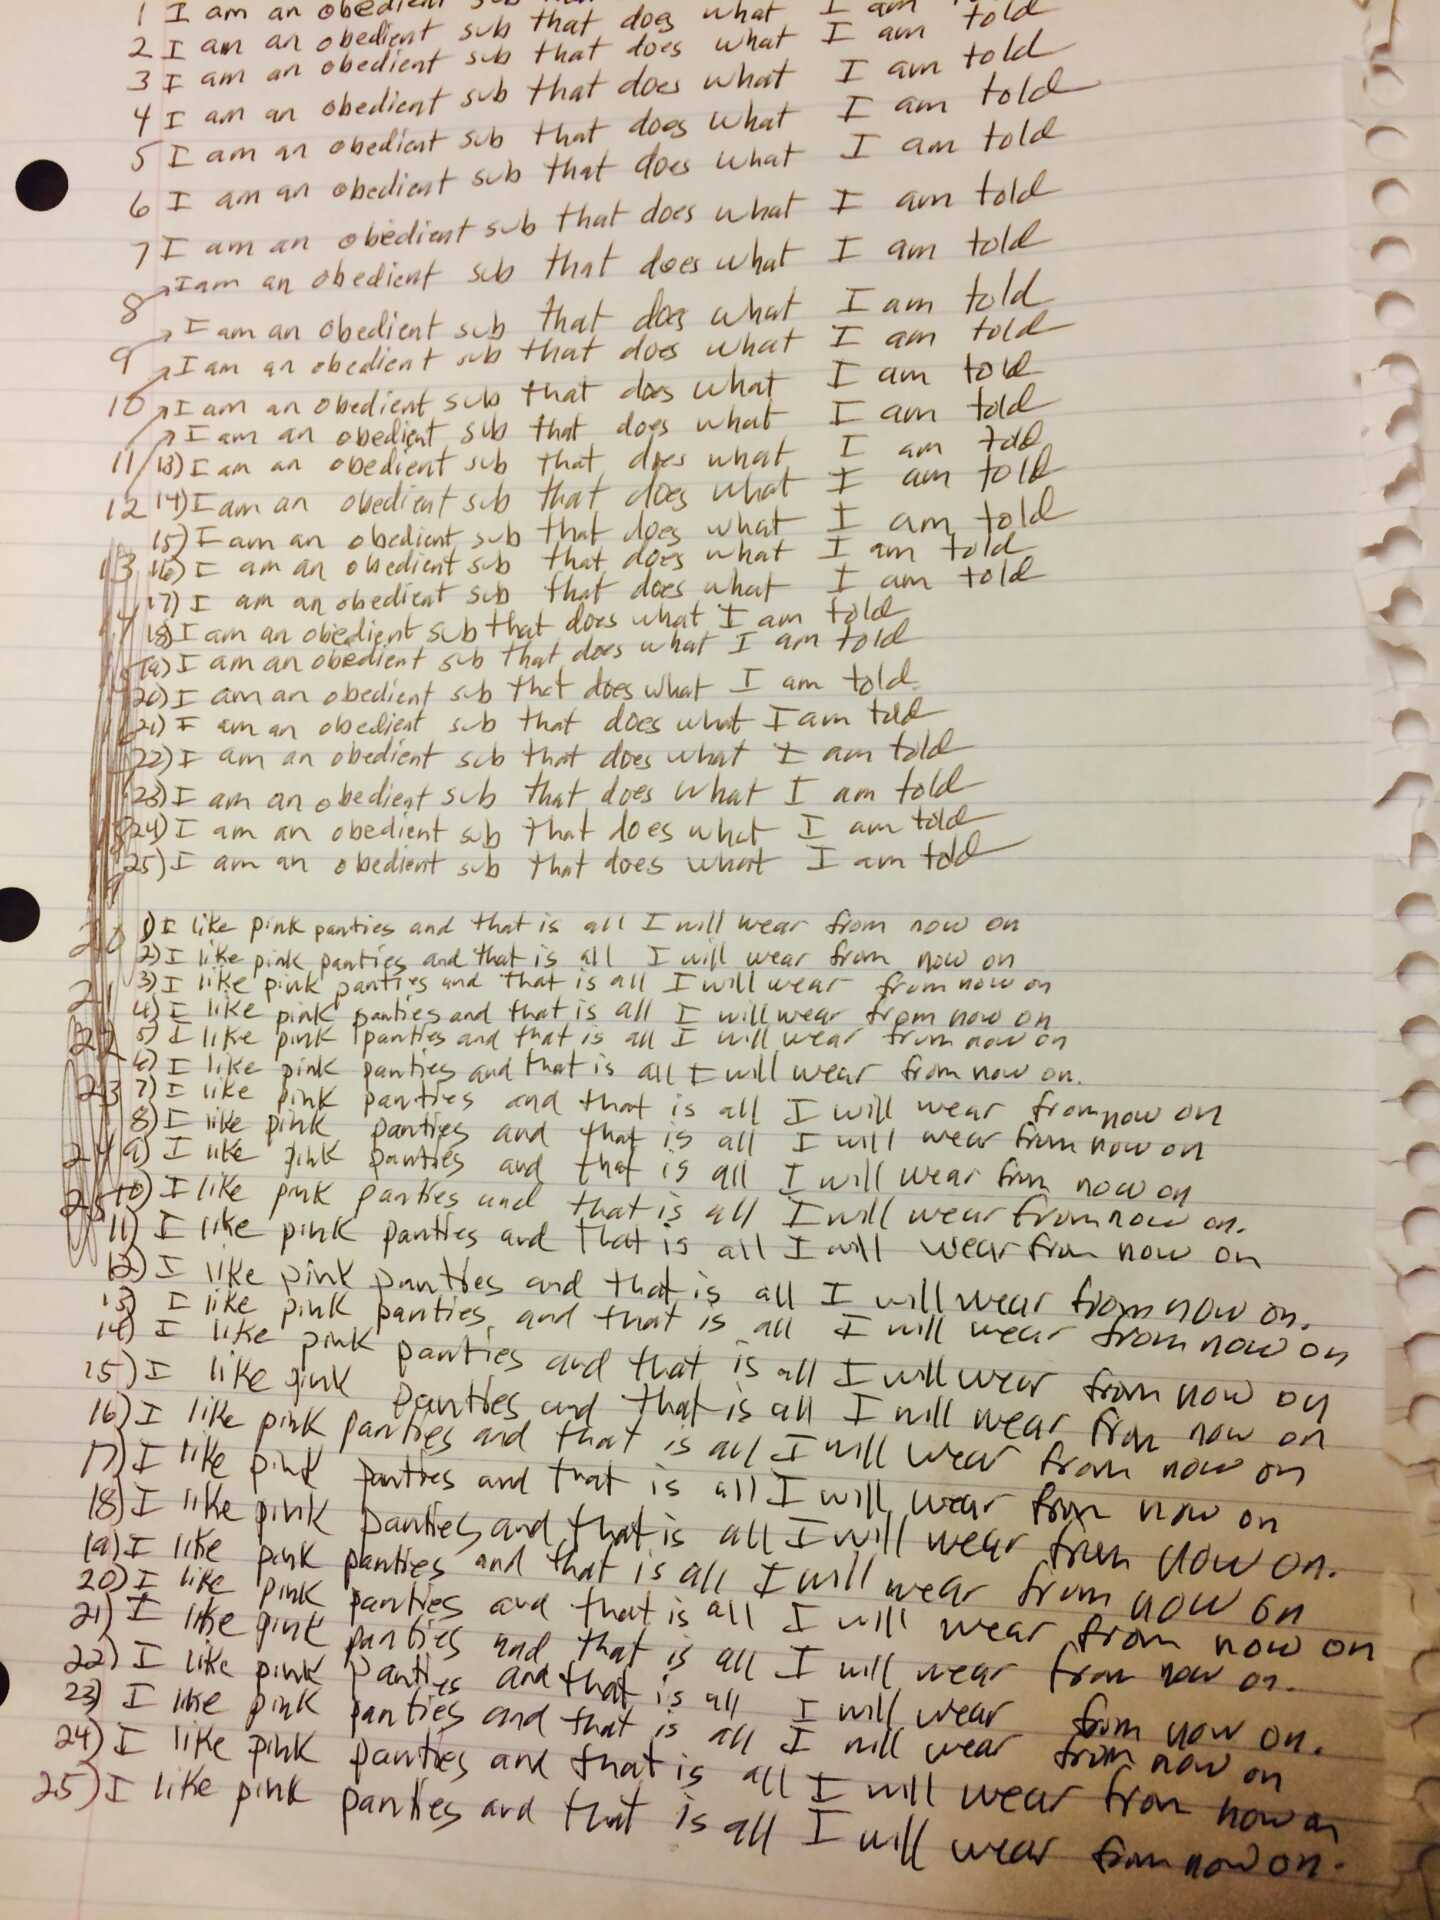 1 I am an obedient sub
2 I am an obedient sub that does what I am told
3 I am an obedient sub that does what I am told
4 I am an obedient sub that does what I am told
5 I am an obedient sub that does what I am told
6 I am an obedient sub that does what I am told
7 I am an obedient sub that does what I am told
8 I am an obedient sub that does what I am told
9 I am an obedient sub that does what I am told
10 I am an obedient sub that does what I am told
11 I am an obedient sub that does what I am told
12 I am an obedient sub that does what I am told
13) I am an obedient sub that does what I am told
14) I am an obedient sub that does what I am told
15) I am an obedient sub that does what I am told
16) I am an obedient sub that does what I am told
17) I am an obedient sub that does what I am told
18) I am an obedient sub that does what I am told
19) I am an obedient sub that does what I am told
20) I am an obedient sub that does what I am told
21) I am an obedient sub that does what I am told
22) I am an obedient sub that does what I am told
23) I am an obedient sub that does what I am told
24) I am an obedient sub that does what I am told
25) I am an obedient sub that does what I am told
1) I like pink panties and that is all I will wear from now on
2) I like pink panties and that is all I will wear from now on
3) I like pink panties and that is all I will wear from now on
4) I like pink panties and that is all I will wear from now on
5) I like pink panties and that is all I will wear from now on
6) I like pink panties and that is all I will wear from now on.
7) I like pink panties and that is all I will wear from now on
8) I like pink panties and that is all I will wear from now on
9) I like pink panties and that is all I will wear from now on
10) I like pink panties and that is all I will wear from now on.
11) I like pink panties and that is all I will wear from now on
12) I like pink panties and that is all I will wear from now on.
13) I like pink panties and that is all I will wear from now on
14) I like pink panties and that is all I will wear from now on
15) I like pink panties and that is all I will wear from now on
16) I like pink panties and that is all I will wear from now on
17) I like pink panties and that is all I will wear from now on
18) I like pink panties and that is all I will wear from now on.
19) I like pink panties and that is all I will wear from now on
20) I like pink panties and that is all I will wear from now on
21) I like pink panties and that is all I will wear from now on.
22) I like pink panties and that is all I will wear from now on.
23) I like pink panties and that is all I will wear from now on
24) I like pink panties and that is all I will wear from now on
25) I like pink panties and that is all I will wear from now on.